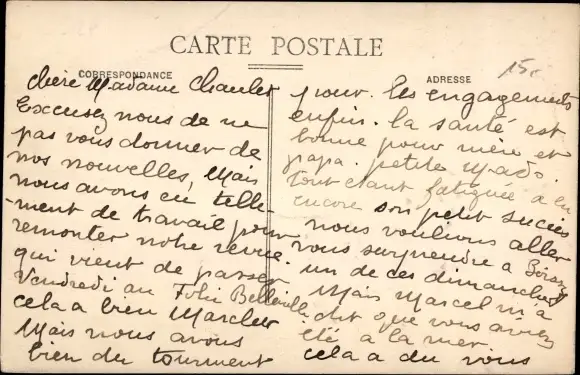 CARTE POSTALE
CORRESPONDANCE
ADRESSE
15
chère Madame Chaulet
Excusez nous de ne
pas vous donner de
nos nouvelles, Mais
nous avons eu telle-
-ment de travail pour
remonter notre revue
qui vient de passer
Vendredi au Folie Belleville
cela a bien Marcher
Mais nous avons
bien du tourment
pour. les engagements
enfin. la santé est
bonne pour mère et
papa. petite Mado.
Tout étant fatiguée a eu
encore son petit succès
nous voulions aller
vous surprendre a
un de ces dimanches
Mais Marcel m'a
dit que vous aviez
été a la mer
cela a du vous